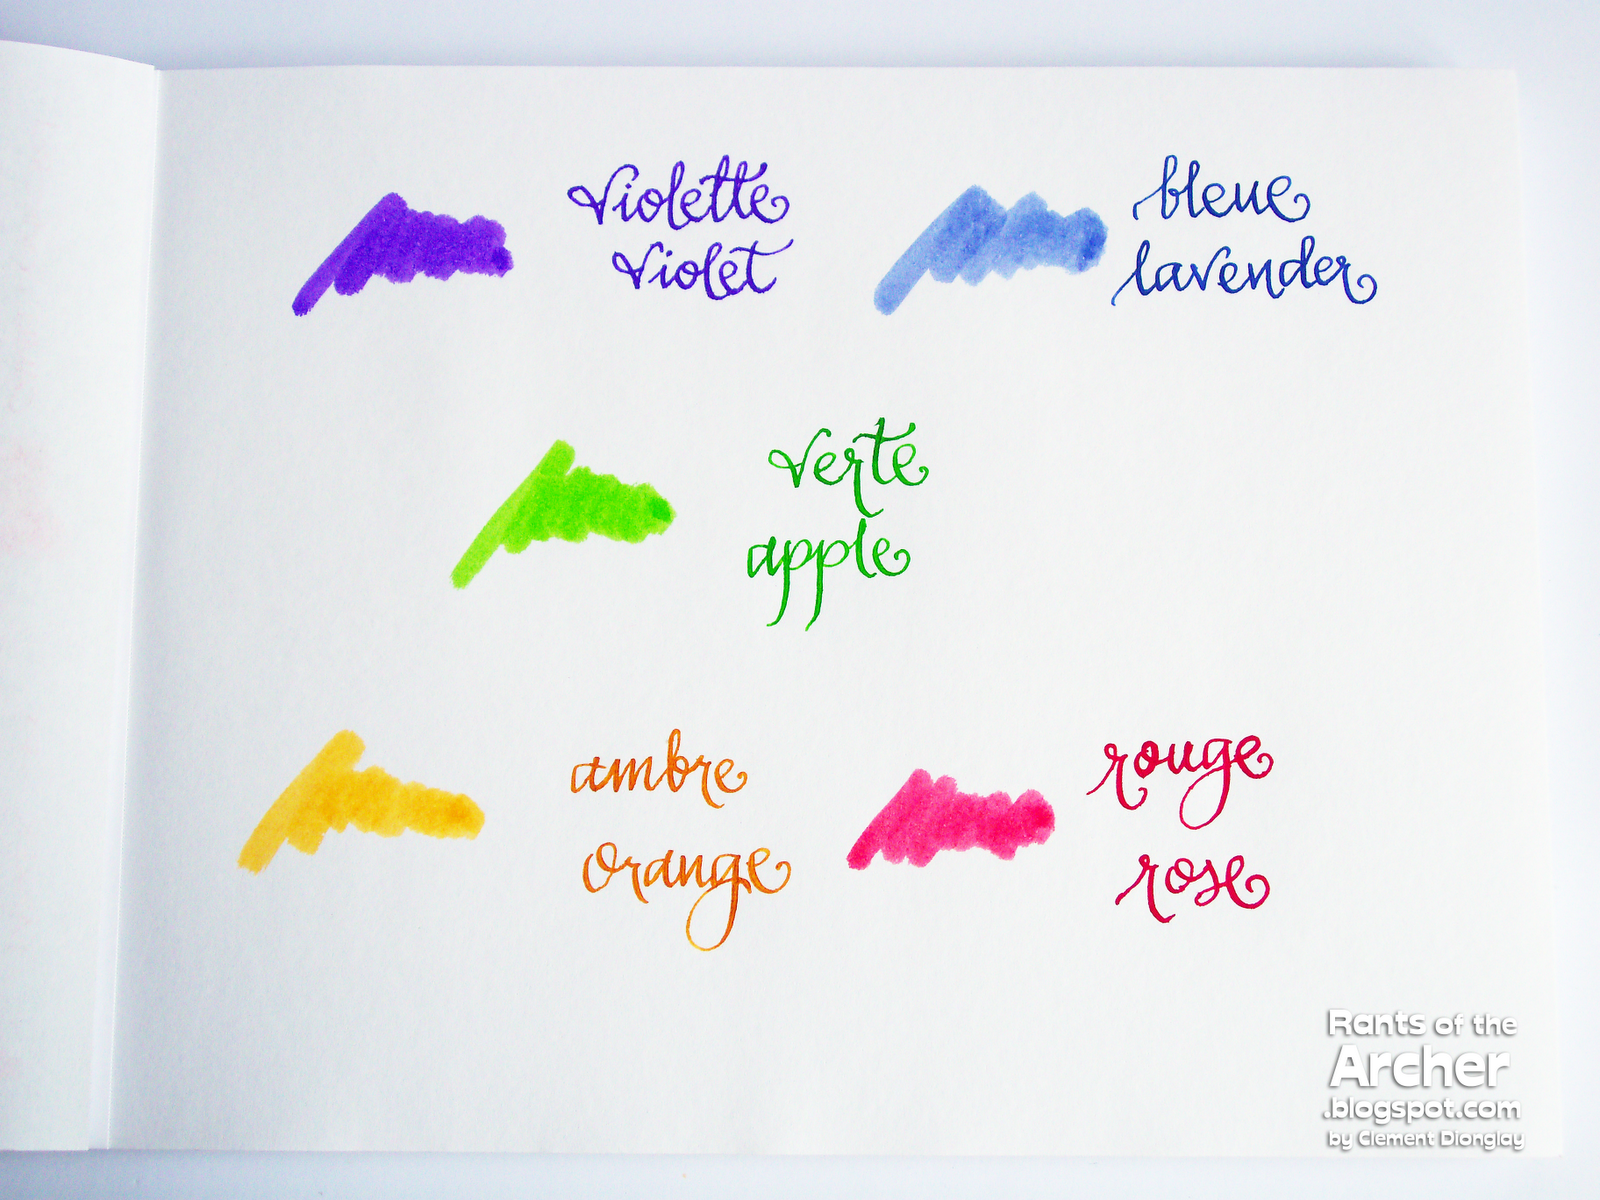 violette
violet
bleue
lavender
verte
apple
ambre
orange
rouge
rose
Rants of the
Archer
.blogspot.com
by Clement Dionglay